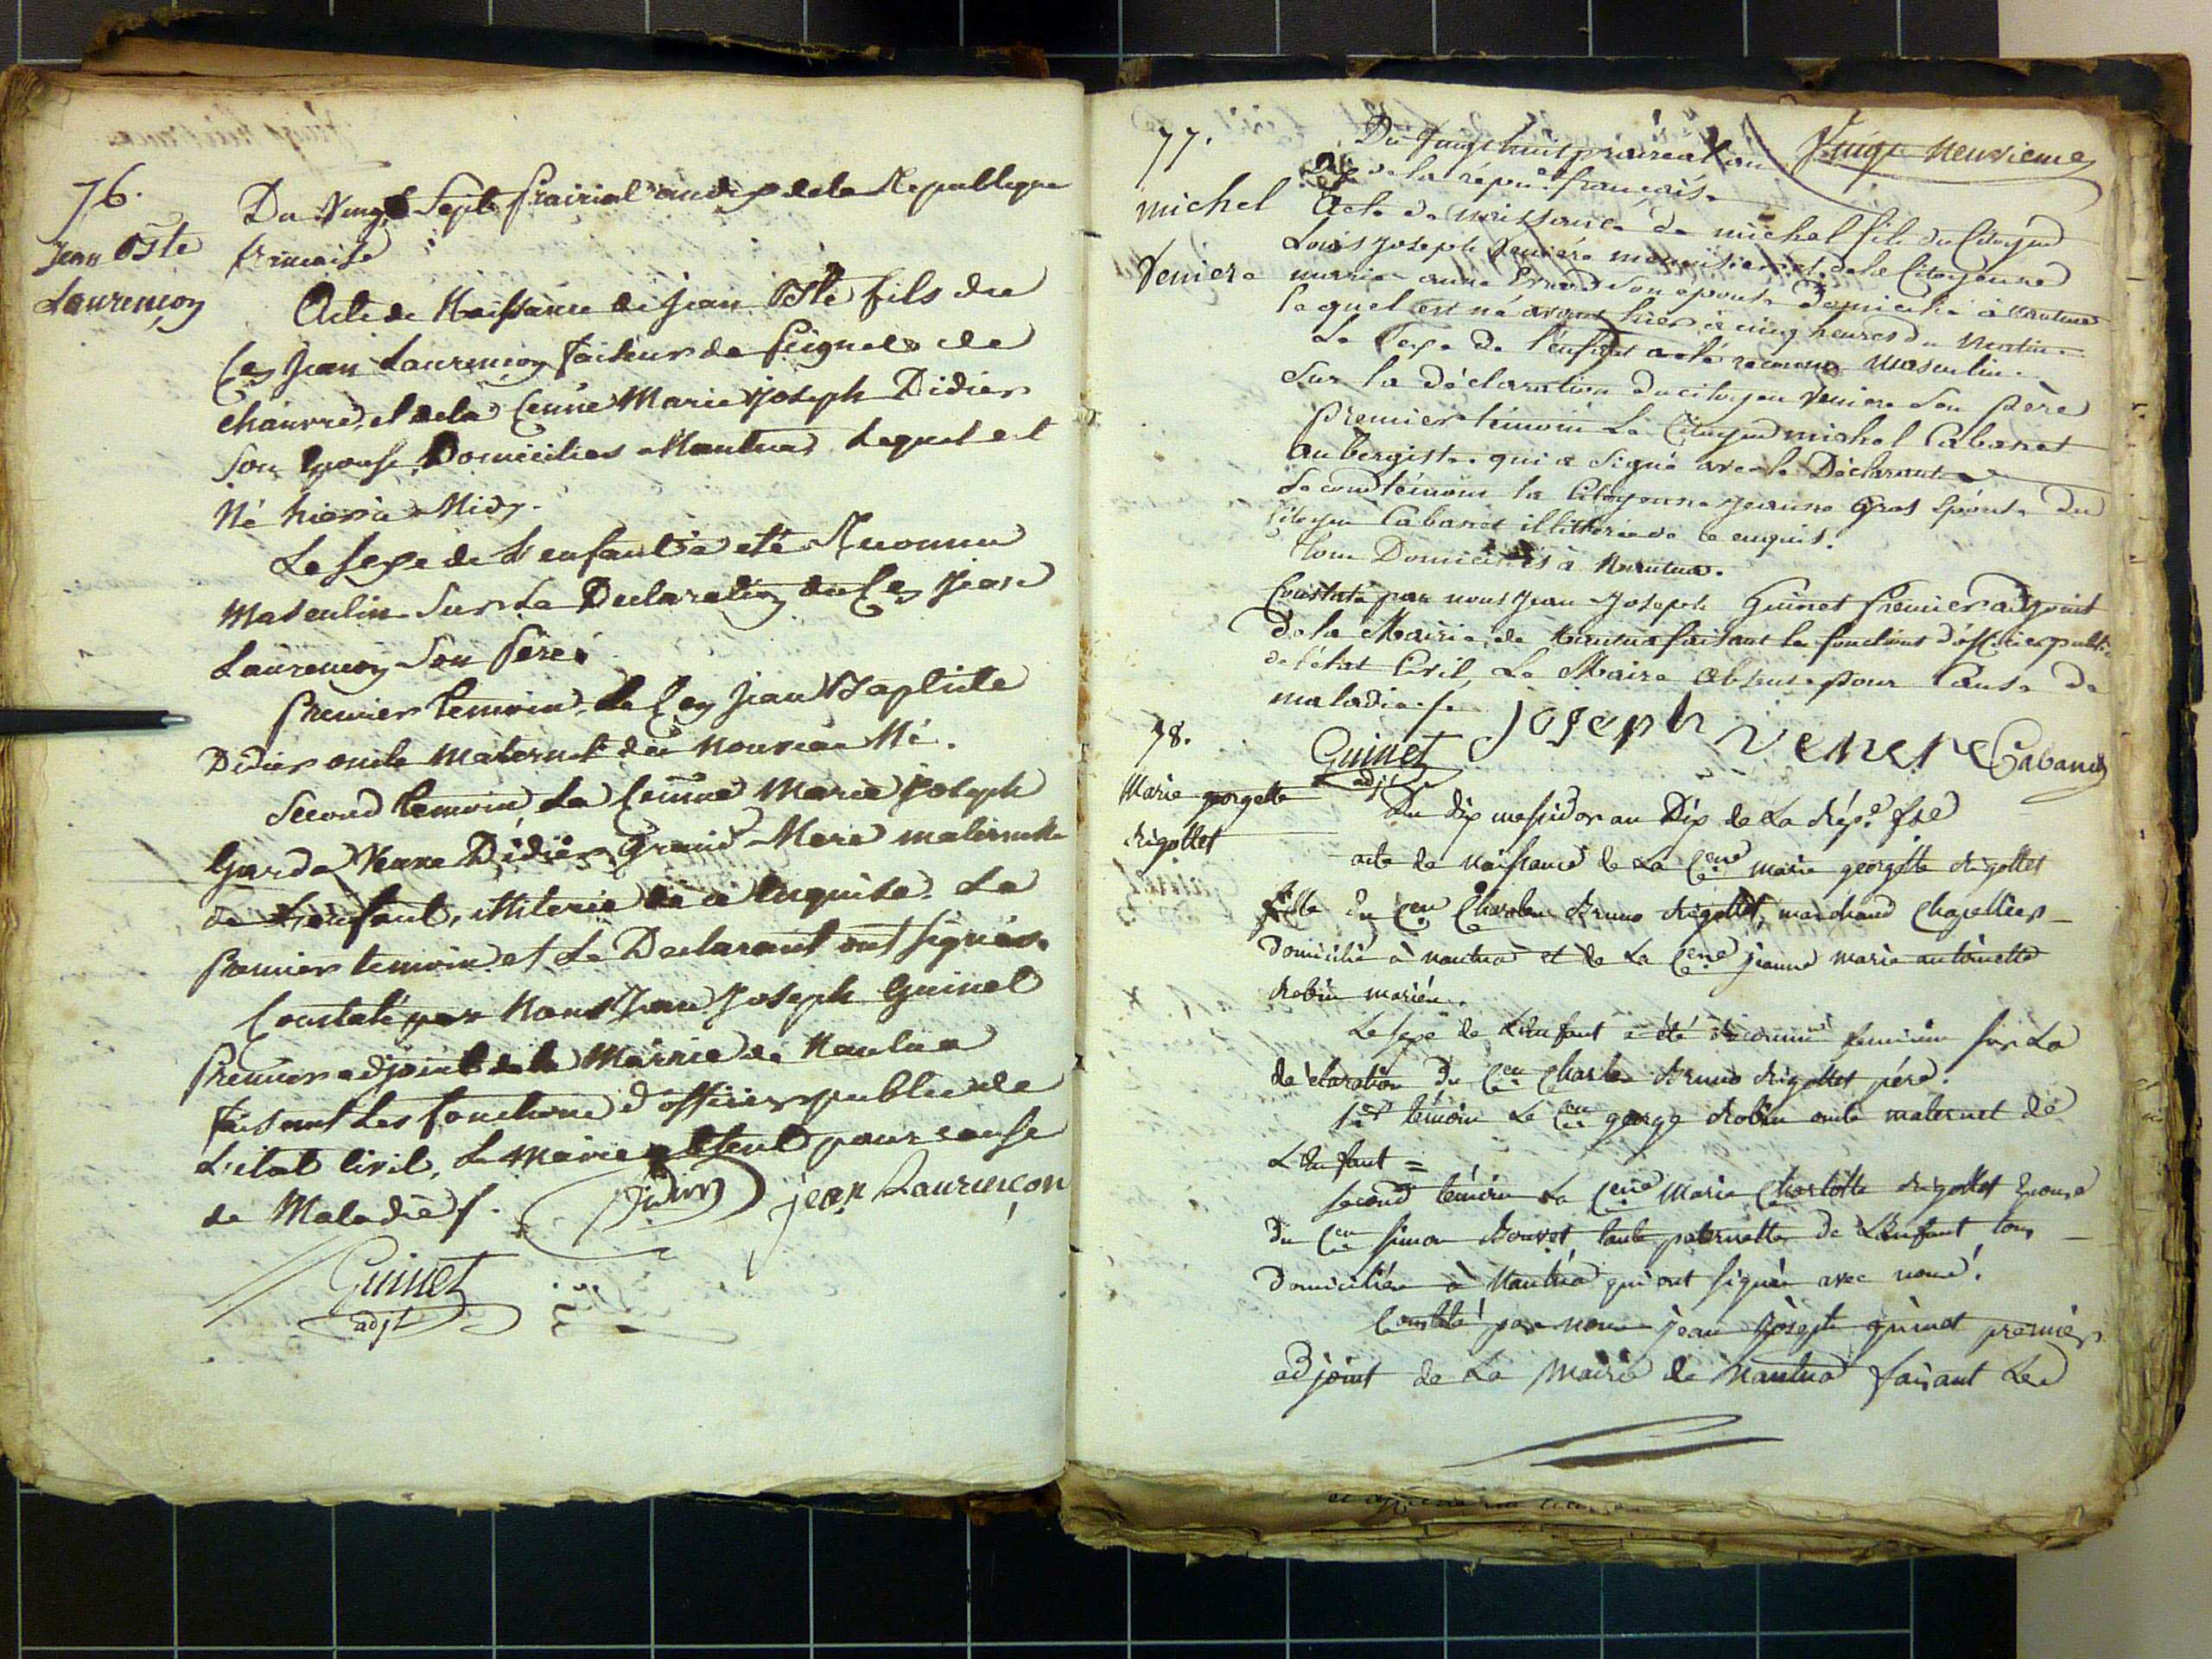 76.
Jean Bte
Laurençon
Du Vingt Sept Prairial an dix de la Republique
française
Acte de Naissance de Jean Bte fils du
Cen Jean Laurençon faiseur de Peignes de
chanvre, et de la Cenne Marie Joseph Didier
Son Epouse Domiciliés a Nantua, lequel est
Né hier à Midy.
Le Sexe de L'enfant a été Reconnu
Masculin Sur La Declaration du Cen Jean
Laurençon Son Père.
Premier temoin le Cen Jean Baptiste
Didier oncle Maternel du Nouveau Né.
Second temoin, La Cenne Marie Joseph
Garda Veuve Didier Grand Mere maternelle
de L'enfant, illiterée de ce Enquise. Le
Premier temoin et Le Declarant ont signés.
Constaté par Nous Jean Joseph Guinet
Premier adjoint de la Mairie de Nantua
faisant Les fonctions d'officier public de
L'état Civil, Le Maire absent pour cause
de Maladie /.
Didier jean Laurençon
Guinet
adjt
Vingt neuvieme
77.
michel
Veniere
Du Vingt huit prairéal an
Dix de la répue française
Acte de Naissance de michel fils du Citoyen
Louis Joseph Veniere menuisier et de la Citoyenne
marie anne Son épouse Domicilié à Nantua
lequel est né avant hier à cinq heures du Matin.
Le Sexe de l'enfant a été reconnu Masculin.
Sur la déclaration du citoyen Veniere Son père
Premier témoin Le Citoyen michel Cabanet
aubergiste. qui a Signé avec le Déclarant
Second témoin la Citoyenne Jeanne Gras Epouse du
Citoyen Cabanet illitterée de ce enquis.
Tous Domiciliés à Nantua.
Constaté par nous Jean Joseph Guinet Premier adjoint
de la Mairie de Nantua faisant les fonctions d'officier public
de l'état Civil, Le Maire absent pour Cause de
maladie /.
Guinet
adjt
joseph venere Cabanet
78.
Marie georgette
Rigollet
Du dix messidor an Dix de La Répe fse
acte de naissance de La Cene marie georgette Rigollet
fille du Cen Charles Bruno Rigollet, marchand Chapellier
domicilié à nantua et de La Cene jeanne marie antoinette
Robin mariés.
Le sexe de L'enfant a été reconnu feminin sur La
déclaration du Cen Charles Bruno Rigollet père.
1er témoin Le Cen george Robin oncle maternel de
L'Enfant =
second témoin La Cene Marie Charlotte Rigollet Epouse
du Cen simon Bouvet tante paternelle de L'Enfant tous
domiciliés à Nantua qui ont signés avec nous.
Constaté par nous jean joseph guinet premier
adjoint de La Mairie de Nantua faisant Les